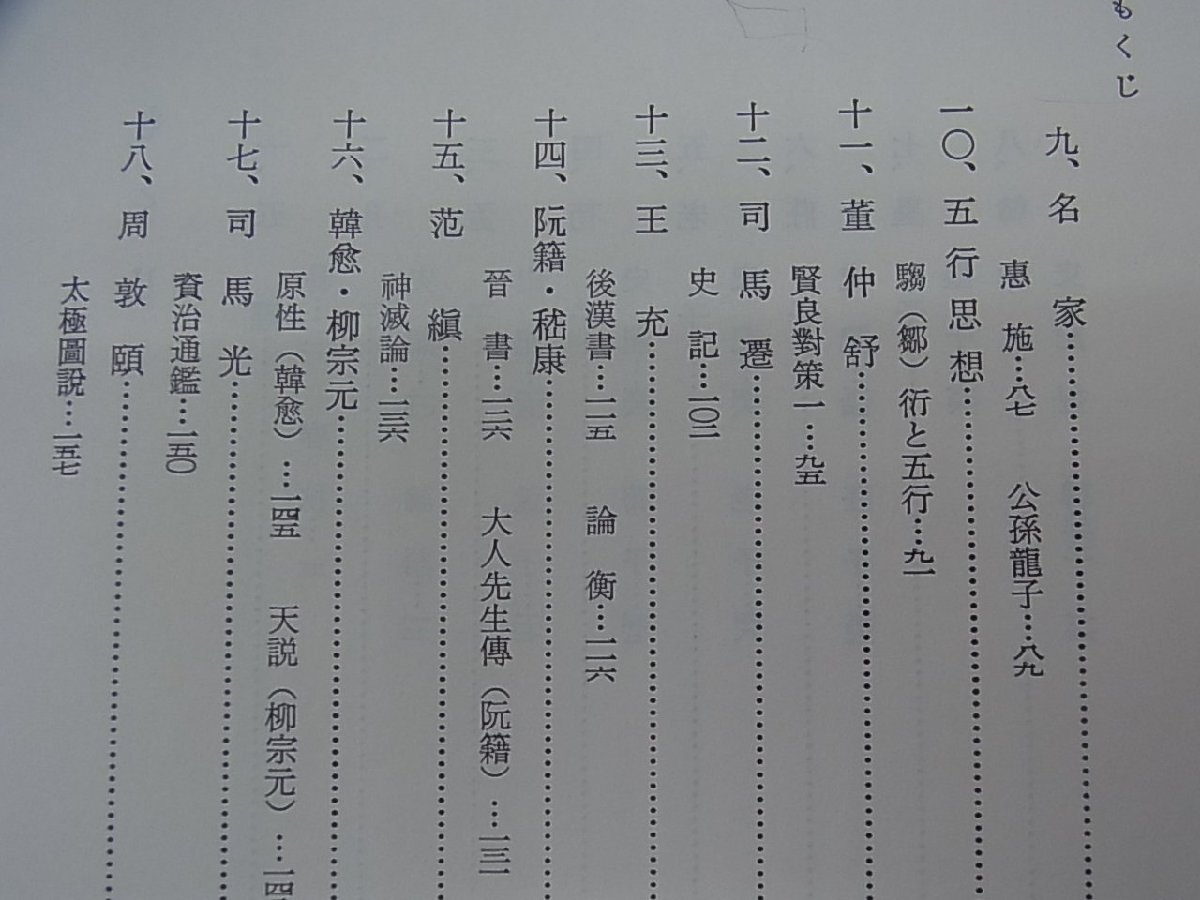 もくじ
九、名家
惠施…八七　公孫龍子…八九
一〇、五行思想
騶（鄒）衍と五行…九一
十一、董仲舒
賢良對策一…九五
十二、司馬遷
史記…一〇二
十三、王充
後漢書…一一五　論衡…一一六
十四、阮籍・嵇康
晉書…一二六　大人先生傳（阮籍）…一三一
十五、范縝
神滅論…一三六
十六、韓愈・柳宗元
原性（韓愈）…一四五　天説（柳宗元）…一四
十七、司馬光
資治通鑑…一五〇
十八、周敦頤
太極圖説…一五七